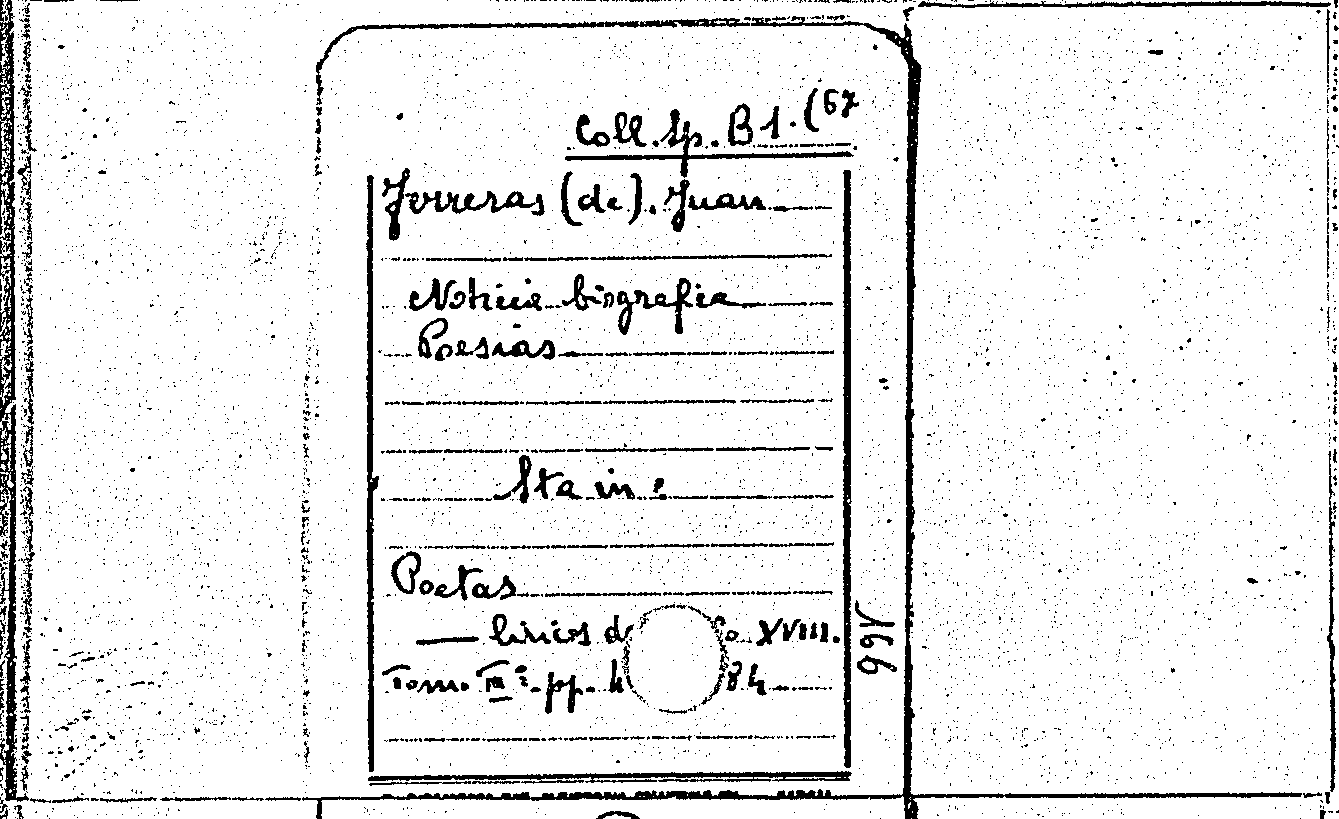 Coll. Sp. B 1. (67
Ferreras (de). Juan
Noticia biografia
Poesias
Sta in:
Poetas
— liricos XVIII.
Tom. III: pp. 84
166